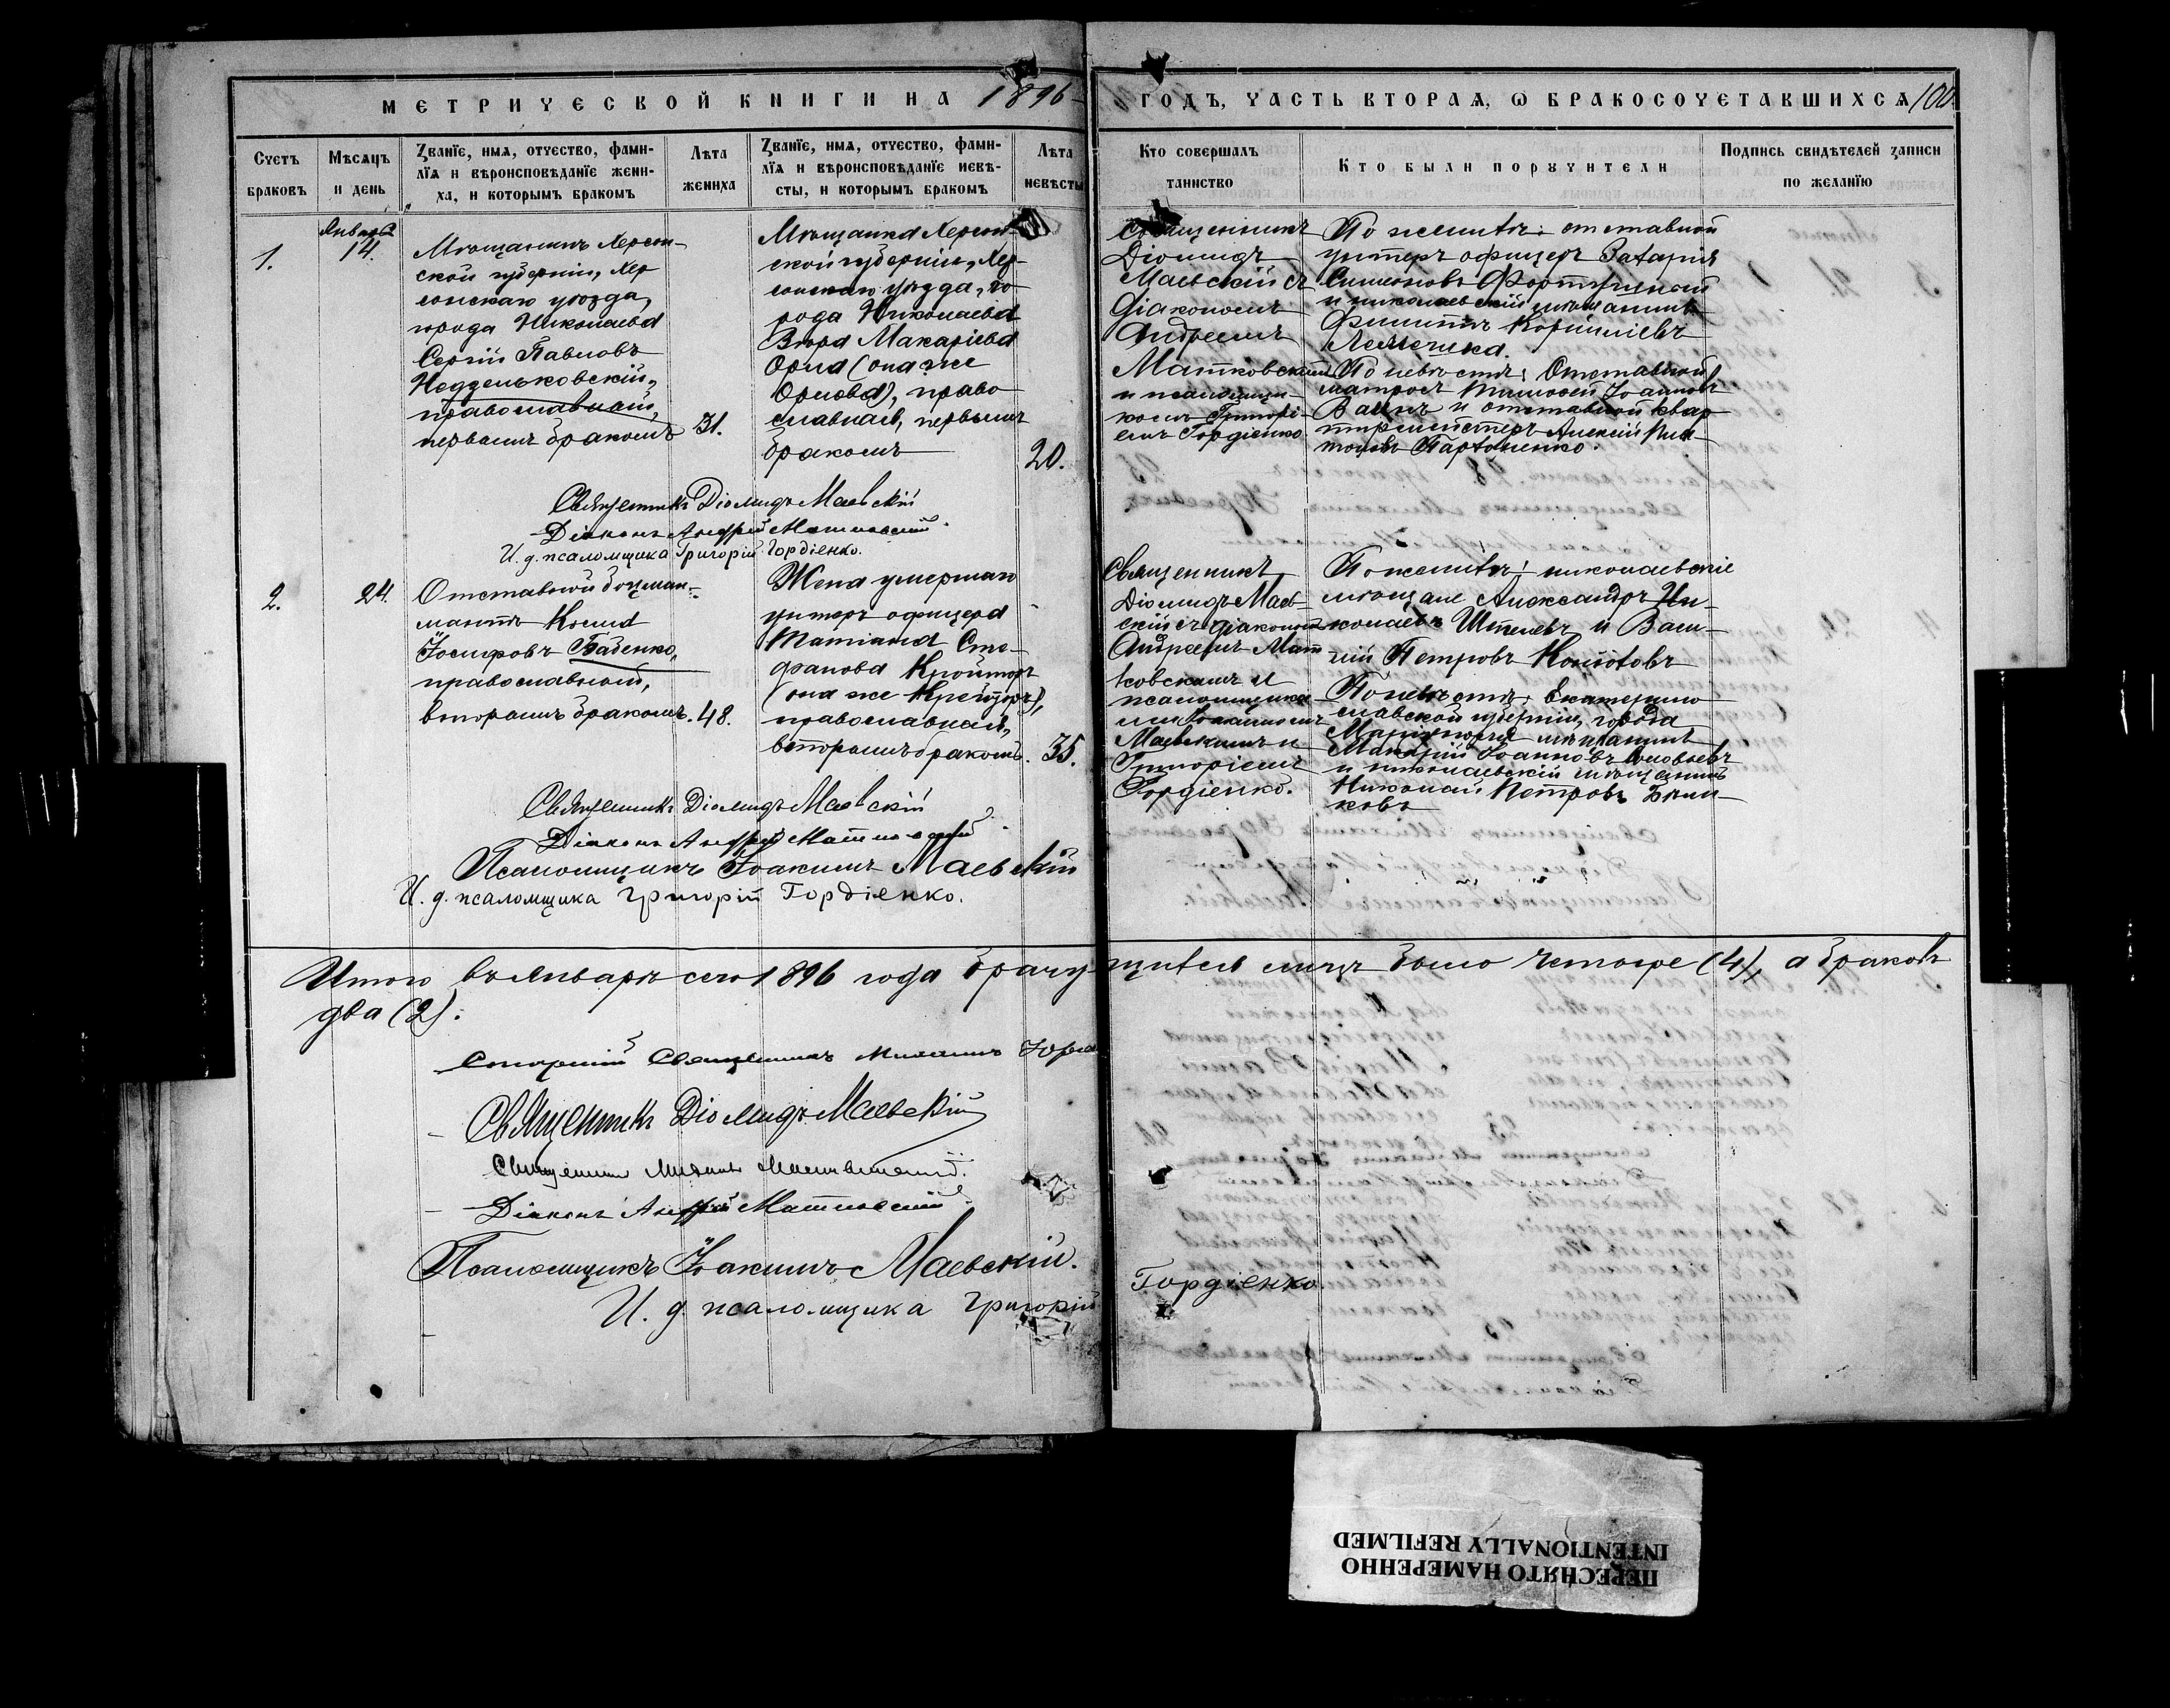 МЕТРИЧЕСКОЙ КНИГИ НА 1896
ГОДЪ, ЧАСТЬ ВТОРАЯ, Ѡ БРАКОСОЧЕТАВШИХСЯ 100.
Счетъ браковъ
Мѣсяцъ и день
Званїе, имя, отчество, фами-
лїя и вѣроисповѣданїе жени-
ха, и которымъ бракомъ
Лѣта жениха
Званїе, имя, отчество, фами-
лїя и вѣроисповѣданїе невѣ-
сты, и которымъ бракомъ
Лѣта невѣсты
Кто совершалъ
таинство
Кто были порꙋчители
Подпись свидѣтелей записи
по желанїю
1.
Января
14.
Мѣщанинъ Херсон-
ской губерніи, Хер
сонскаго уѣзда,
города Николаева
Сергій Павловъ
православный,
первымъ бракомъ
31.
Мѣщанка Херсон-
ской губерніи, Хер-
сонскаго уѣзда, го-
рода Николаева
Макаріева
Орла (она же
Орлова), право
славная, первымъ
бракомъ
20.
Священникъ
Діомидъ
Маевскій съ
діакономъ
Андреемъ
Матковскимъ
и псаломщи-
комъ Григорі-
емъ Гордіенко
По женихѣ: отставной
унтеръ офицеръ Захарія
Симеоновъ
и николаевскій мѣщанинъ
Филиппъ Корниліевъ
По невѣстѣ: Отставной
матросъ Тимофей Іоанновъ
и отставной квар
тирмейстеръ Алексій Пла-
тоновъ Пархоменко.
Священникъ Діомидъ Маевскій
Діаконъ Андрей Матковский.
И. д. псаломщика Григорій Гордіенко.
2.
24.
Отставной боцман-
матъ Косма
Іосифовъ Баденко,
православный,
вторымъ бракомъ.
48.
Жена умершаго
унтеръ офицера
Татіана Сте-
фанова
(она же
православная,
вторымъ бракомъ.
35.
Священникъ
Діомидъ Маев-
скій съ діакономъ
Андреемъ Мат
ковскимъ и
псаломщика-
ми Іоакимомъ
Маевскимъ и
Григоріемъ
Гордіенко.
По женихѣ: николаевскіе
мѣщане Александръ Ни-
колаевъ и Васи-
лій Петровъ
По невѣстѣ: Екатерино
славской губерніи, города
Маріуполя мѣщанинъ
Макарій Іоанновъ Соловьевъ
и николаевскій мѣщанинъ
Николай Петровъ
ковъ
Священникъ Діомидъ Маевскій
Діаконъ Андрей Матковский.
Псаломщикъ Іоакимъ Маевскій
И. д. псаломщика Григорій Гордіенко.
Итого въ январѣ сего 1896 года брачу- щихся лицъ было четыре (4), а браковъ
два (2).
Священникъ Михаилъ
Священникъ Діомидъ Маевскій
Священникъ Михаилъ
Діаконъ Андрей Матковский.
Псаломщикъ Іоакимъ Маевскій.
И. д. псаломщика Григорій Гордіенко
ПЕРЕСНЯТО НАМЕРЕННО
INTENTIONALLY REFILMED